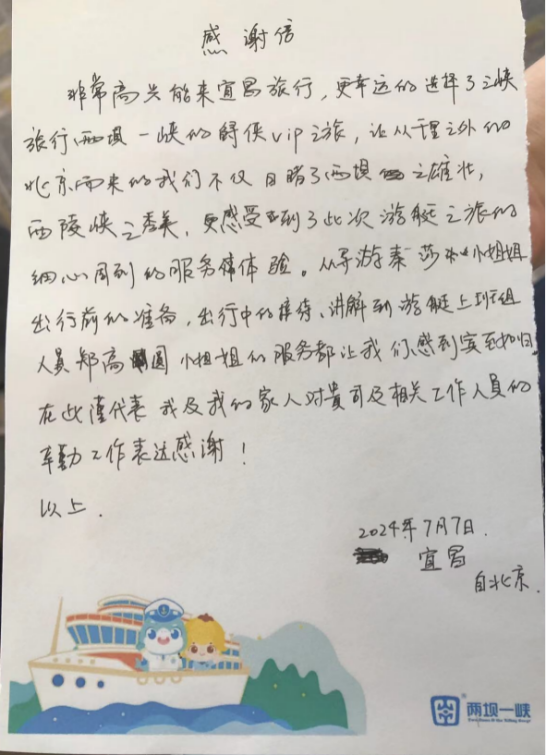 感谢信
非常高兴能来宜昌旅行，更幸运的选择了三峡
旅行、两坝一峡的尊侯vip之旅，让从千里之外的
北京而来的我们不仅目睹了两坝之雄壮，
西陵峡之秀美，更感受到了此次游艇之旅的
细心周到的服务体验。从导游秦莎小姐姐
出行前的准备，出行中的接待、讲解到游艇上班组
人员郑高圆小姐姐的服务都让我们感到宾至如归
在此谨代表我及我的家人对贵司及相关工作人员的
辛勤工作表达感谢！
以上.
2024年7月7日.
宜昌
自北京.
两坝一峡